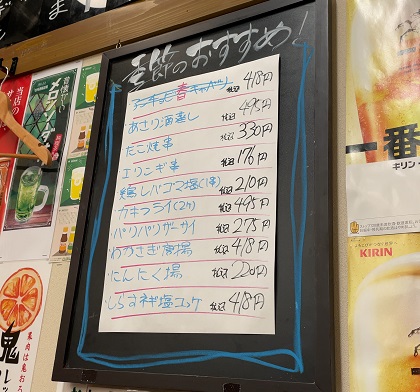 季節のおすすめ!
アンチョビ春キャベツ 税込 418円
あさり酒蒸し 税込 495円
たこ焼串 税込 330円
エリンギ串 税込 176円
鶏レバゴマ塩(1串) 税込 210円
カキフライ(2ケ) 税込 495円
パリパリザーサイ 税込 275円
わかさぎ唐揚 税込 418円
にんにく揚 税込 220円
しらすネギ塩コロッケ 税込 418円
当店の
メロンサ
一番
キリン
KIRIN
鬼
レッ
果肉は鬼お